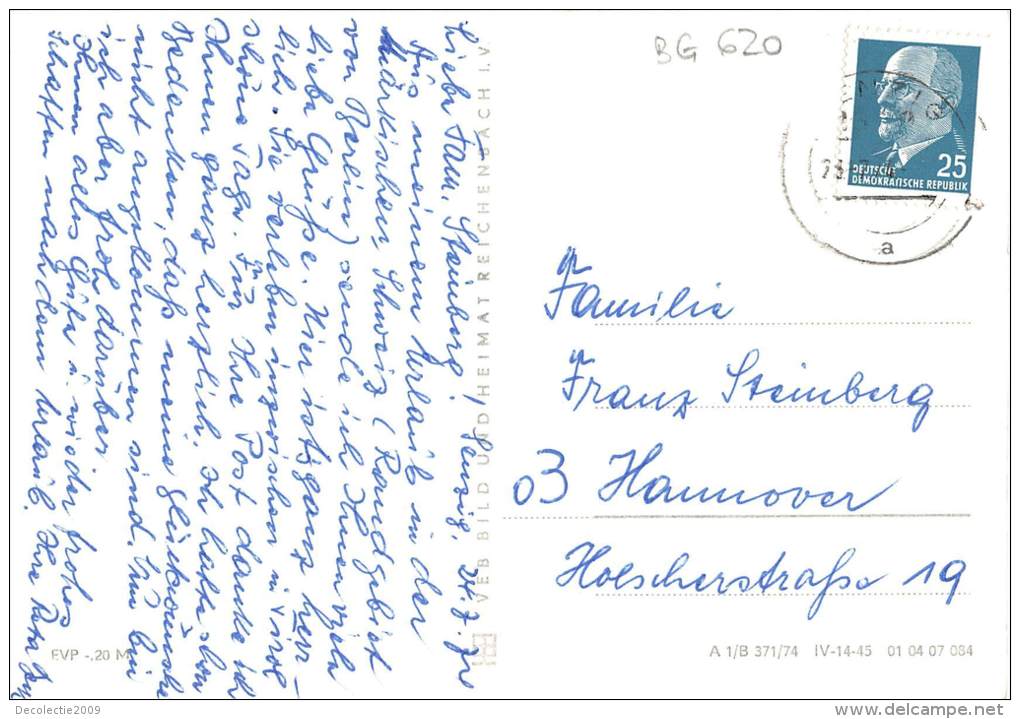 BG 620
25
DEUTSCHE
DEMOKRATISCHE REPUBLIK
a
Liebe Fam. Steinberg! Senzig, 24.7.
Aus meinem Urlaub in der
Märkischen Schweiz (Randgebiet
von Berlin) sende ich Ihnen viele
liebe Grüße. Hier ist's ganz herr-
lich. Sie verleben inzwischen
schöne Tage. Für Ihre Post danke ich
Ihnen ganz herzlich. Ich hatte schon
Bedenken, daß meine Glückwünsche
nicht angekommen sind. Nun bin
ich aber froh darüber.
Ihnen alles Gute u. wieder frohes
Schaffen nach dem Urlaub. Ihre
VEB BILD UND HEIMAT REICHENBACH I. V
Familie
Franz Steinberg
03 Hannover
Hoescherstraße 19
EVP -.20 M
A 1/B 371/74 IV-14-45 01 04 07 084
Decolectie2009
www.delcampe.net